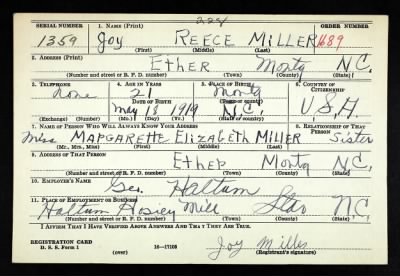 228
SERIAL NUMBER 1. NAME (Print) ORDER NUMBER
1359 Joy REECE MILLER 1689
(First) (Middle) (Last)
2. ADDRESS (Print)
Ether Montg N.C.
(Number and street or R. F. D. number) (Town) (County) (State)
3. TELEPHONE 4. AGE IN YEARS 5. PLACE OF BIRTH 6. COUNTRY OF CITIZENSHIP
none 21 Montg
DATE OF BIRTH (Town or county)
May 18 1919 N.C. U.S.A.
(Exchange) (Number) (Mo.) (Day) (Yr.) (State or country)
7. NAME OF PERSON WHO WILL ALWAYS KNOW YOUR ADDRESS 8. RELATIONSHIP OF THAT PERSON
Miss MARGARETTE ELIZABETH MILLER Sister
(Mr., Mrs., Miss) (First) (Middle) (Last)
9. ADDRESS OF THAT PERSON
Ether Montg N.C.
(Number and street or R. F. D. number) (Town) (County) (State)
10. EMPLOYER'S NAME
Geo. Haltum
11. PLACE OF EMPLOYMENT OR BUSINESS
Haltum Hosiey Mill Star N.C.
(Number and street or R. F. D. number) (Town) (County) (State)
I AFFIRM THAT I HAVE VERIFIED ABOVE ANSWERS AND THAT THEY ARE TRUE.
REGISTRATION CARD
D. S. S. Form 1 (over) 16—17105 Joy Miller
(Registrant's signature)